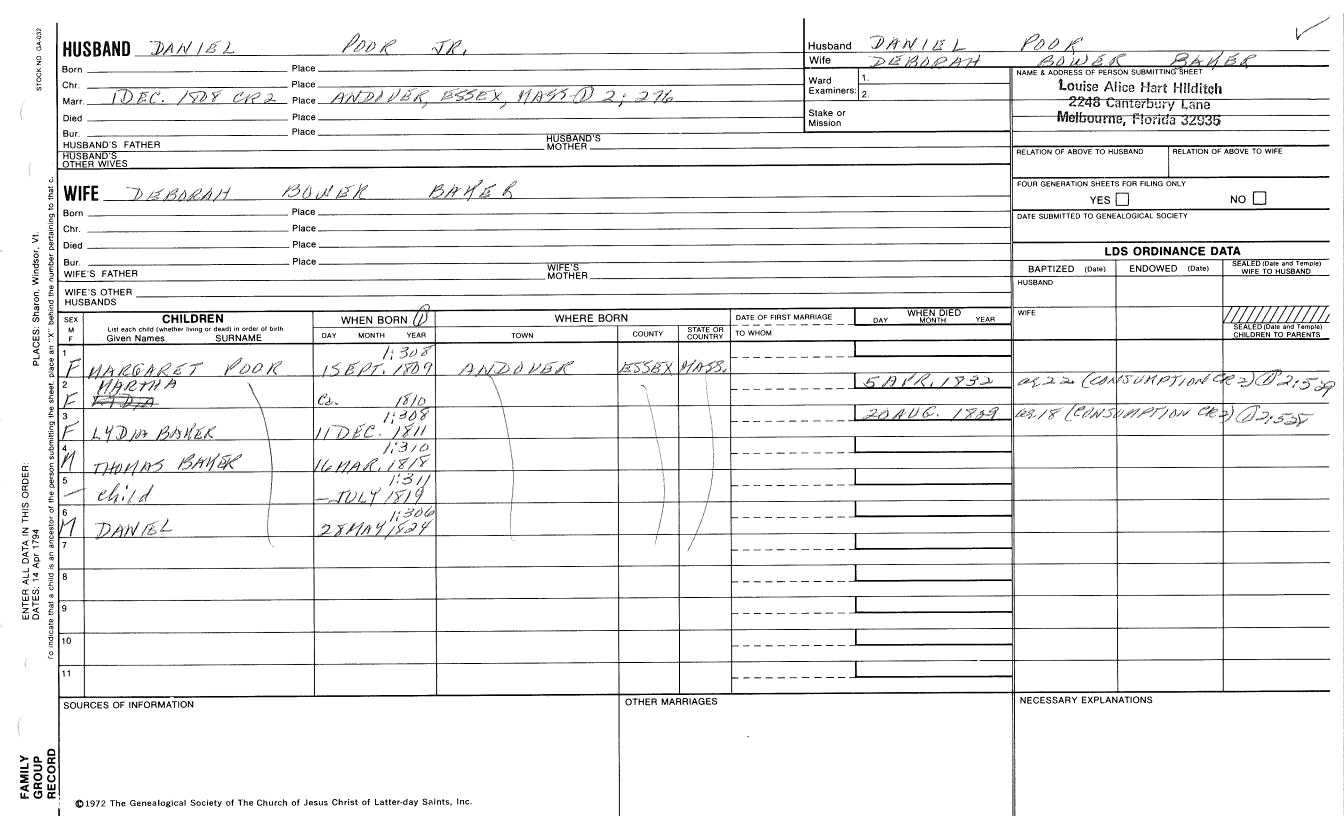 STOCK NO GA-032
PLACES: Sharon, Windsor, Vt.
ENTER ALL DATA IN THIS ORDER:
DATES: 14 Apr 1794
To indicate that a child is an ancestor of the person submitting the sheet, place an "X" behind the number pertaining to that c.
FAMILY GROUP RECORD
HUSBAND DANIEL POOR JR.
Born Place
Chr. Place
Marr. 1 DEC. 1808 CR2 Place ANDOVER, ESSEX, MASS ① 2; 276
Died Place
Bur. Place
HUSBAND'S FATHER HUSBAND'S MOTHER
HUSBAND'S OTHER WIVES
Husband DANIEL POOR
Wife DEBORAH BOWER BAKER
Ward Examiners: 1.
2.
Stake or Mission
NAME & ADDRESS OF PERSON SUBMITTING SHEET
Louise Alice Hart Hilditch
2248 Canterbury Lane
Melbourne, Florida 32935
RELATION OF ABOVE TO HUSBAND RELATION OF ABOVE TO WIFE
FOUR GENERATION SHEETS FOR FILING ONLY
YES NO
DATE SUBMITTED TO GENEALOGICAL SOCIETY
WIFE DEBORAH BOWER BAKER
Born Place
Chr. Place
Died Place
Bur. Place
WIFE'S FATHER WIFE'S MOTHER
WIFE'S OTHER HUSBANDS
LDS ORDINANCE DATA
BAPTIZED (Date) ENDOWED (Date) SEALED (Date and Temple) WIFE TO HUSBAND
HUSBAND
WIFE
SEALED (Date and Temple) CHILDREN TO PARENTS
SEX M F
CHILDREN
List each child (whether living or dead) in order of birth
Given Names SURNAME
WHEN BORN ①
DAY MONTH YEAR
WHERE BORN
TOWN COUNTY STATE OR COUNTRY
DATE OF FIRST MARRIAGE
TO WHOM
WHEN DIED
DAY MONTH YEAR
1 1:308
F MARGARET POOR 1 SEPT. 1809 ANDOVER ESSEX MASS.
2 MARTHA 5 APR. 1832 ag. 22 (CONSUMPTION CR2) ① 2:529
F LYDIA Ca. 1810
3 1:308 20 AUG. 1829 ag. 18 (CONSUMPTION CR2) ① 2:528
F LYDIA BAKER 11 DEC. 1811
4 1:310
M THOMAS BAKER 16 MAR. 1818
5 1:311
— child — JULY 1819
6 1:306
M DANIEL 28 MAY 1824
7
8
9
10
11
SOURCES OF INFORMATION OTHER MARRIAGES NECESSARY EXPLANATIONS
©1972 The Genealogical Society of The Church of Jesus Christ of Latter-day Saints, Inc.